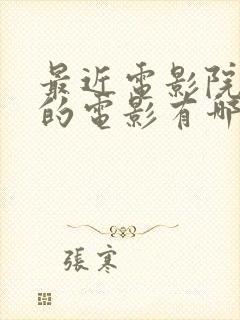 最近電影院
的電影有哪
張寒